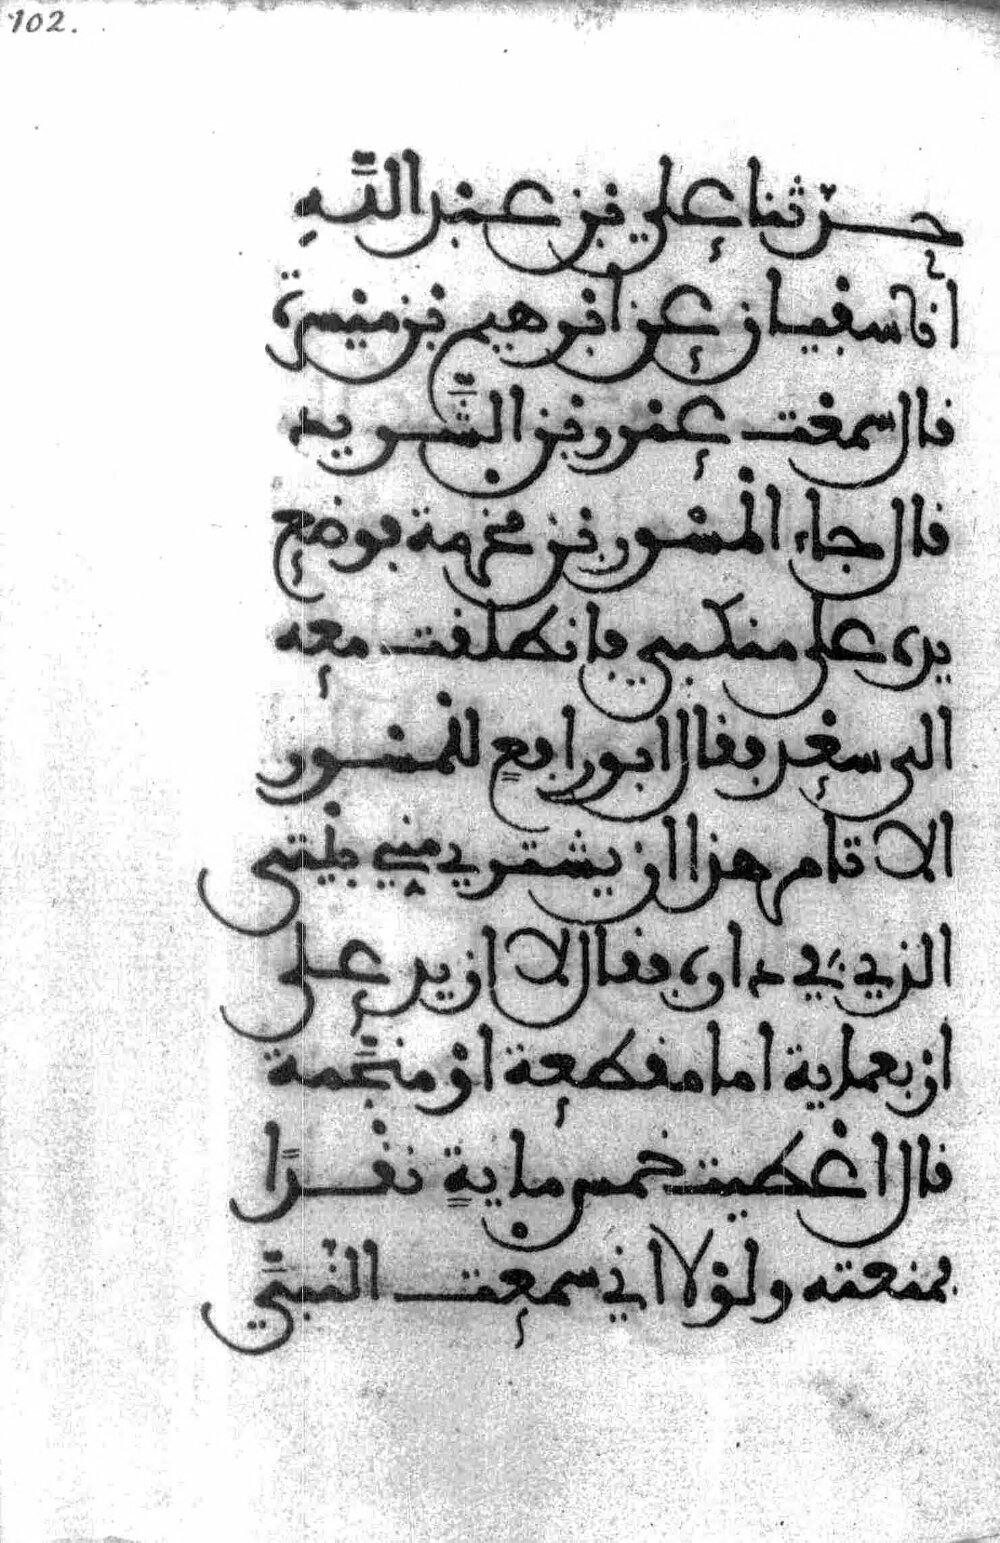 102.
حدثنا علي بن عبد الله
انا سفيان عن ابرهيم بن ميسرة
قال سمعت عمرو بن الشريد
قال جاء المسور بن مخرمة فوضع
يده على منكبي فانطلقت معه
الى سعد فقال ابو رافع للمسور
الا تامر هذا ان يشتري مني بيتي
الذي في داره فقال لا ازيده على
اربعماية اما مقطعة او منجمة
قال اعطيت خمس ماية نقدا
فمنعته ولولا اني سمعت النبي